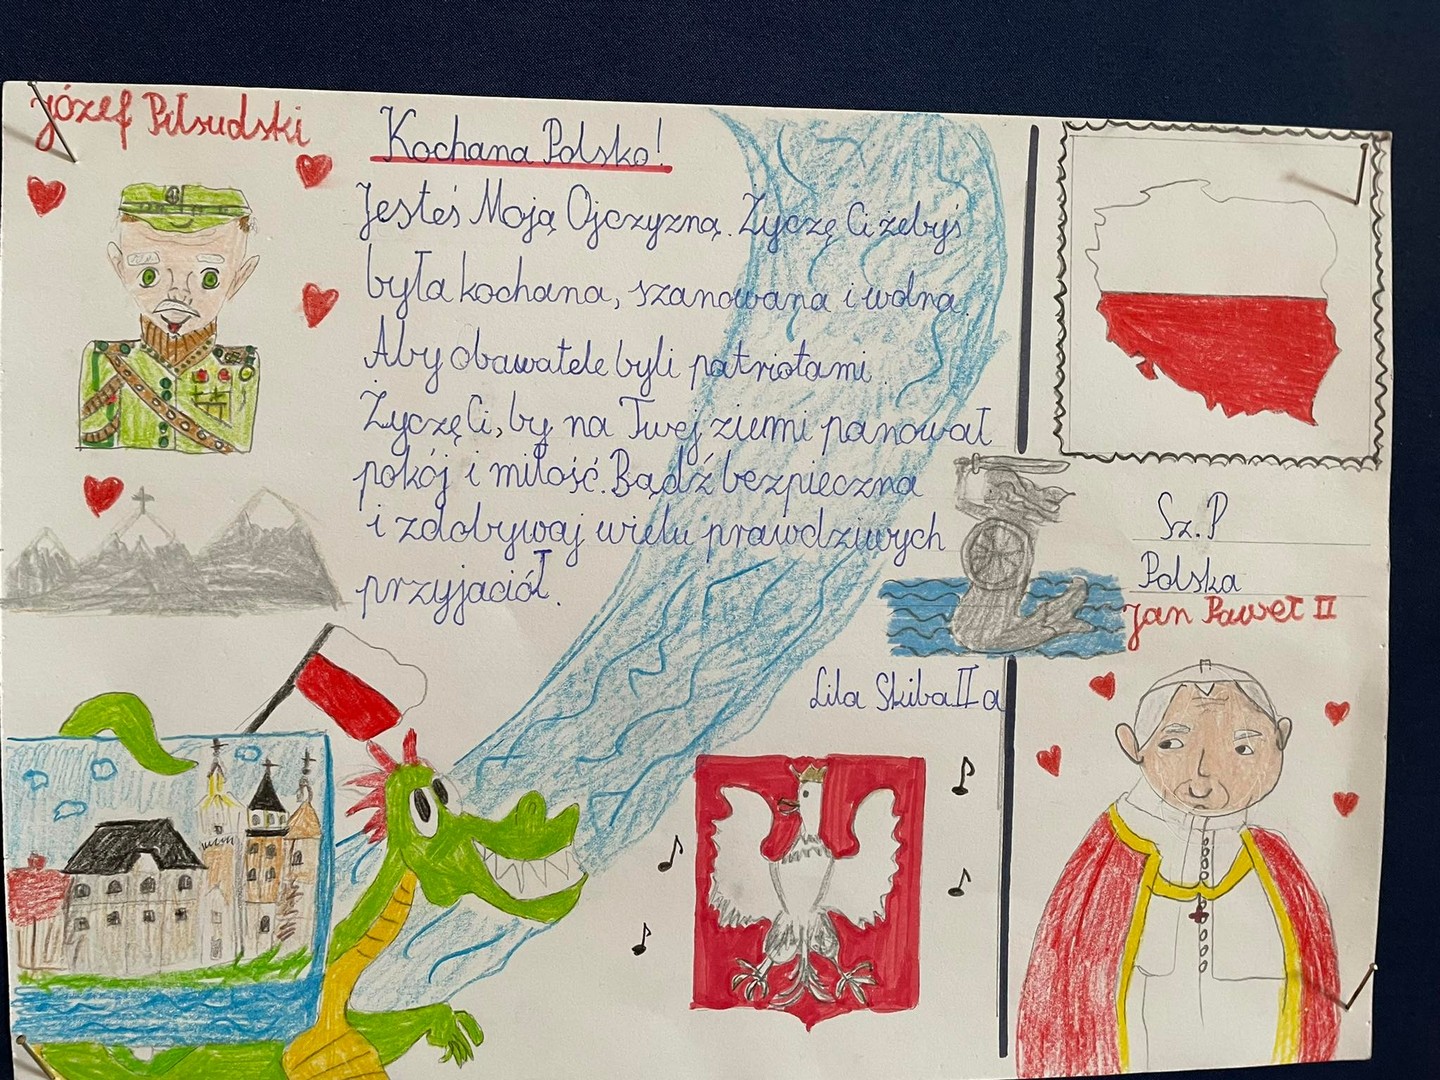 Józef Piłsudski
Kochana Polsko!
Jesteś Moją Ojczyzną. Życzę Ci żebyś
była kochana, szanowana i wolna.
Aby obawatele byli patriotami.
Życzę Ci, by na Twej ziemi panował
pokój i miłość. Bądź bezpieczna
i zdobywaj wielu prawdziwych
przyjaciół.
Lila Skiba II a
Sz. P
Polska
Jan Paweł II